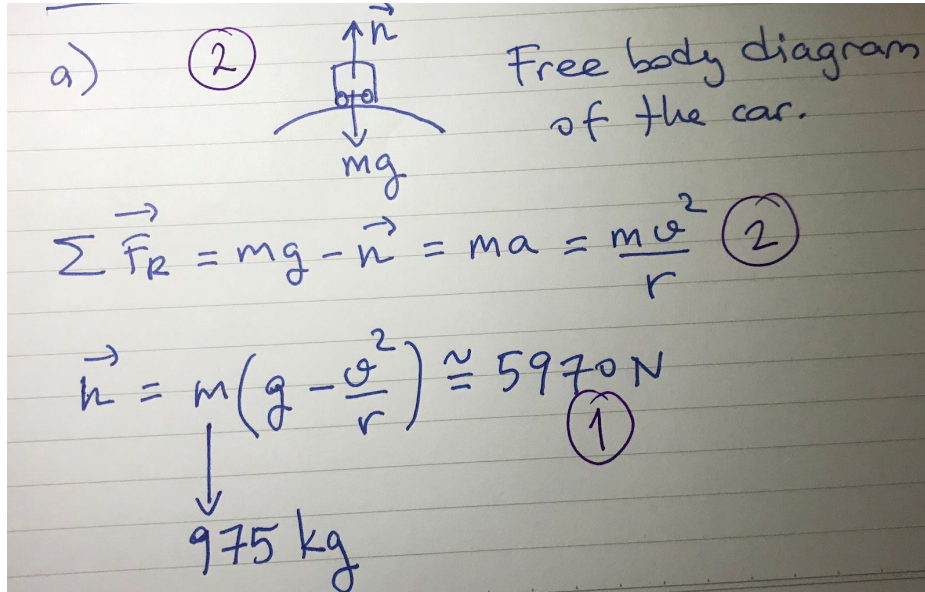 a) ② n⃗ Free body diagram
of the car.
mg
∑ F⃗_R = mg - n⃗ = ma = mv²/r ②
n⃗ = m(g - v²/r) ≅ 5970 N
①
975 kg